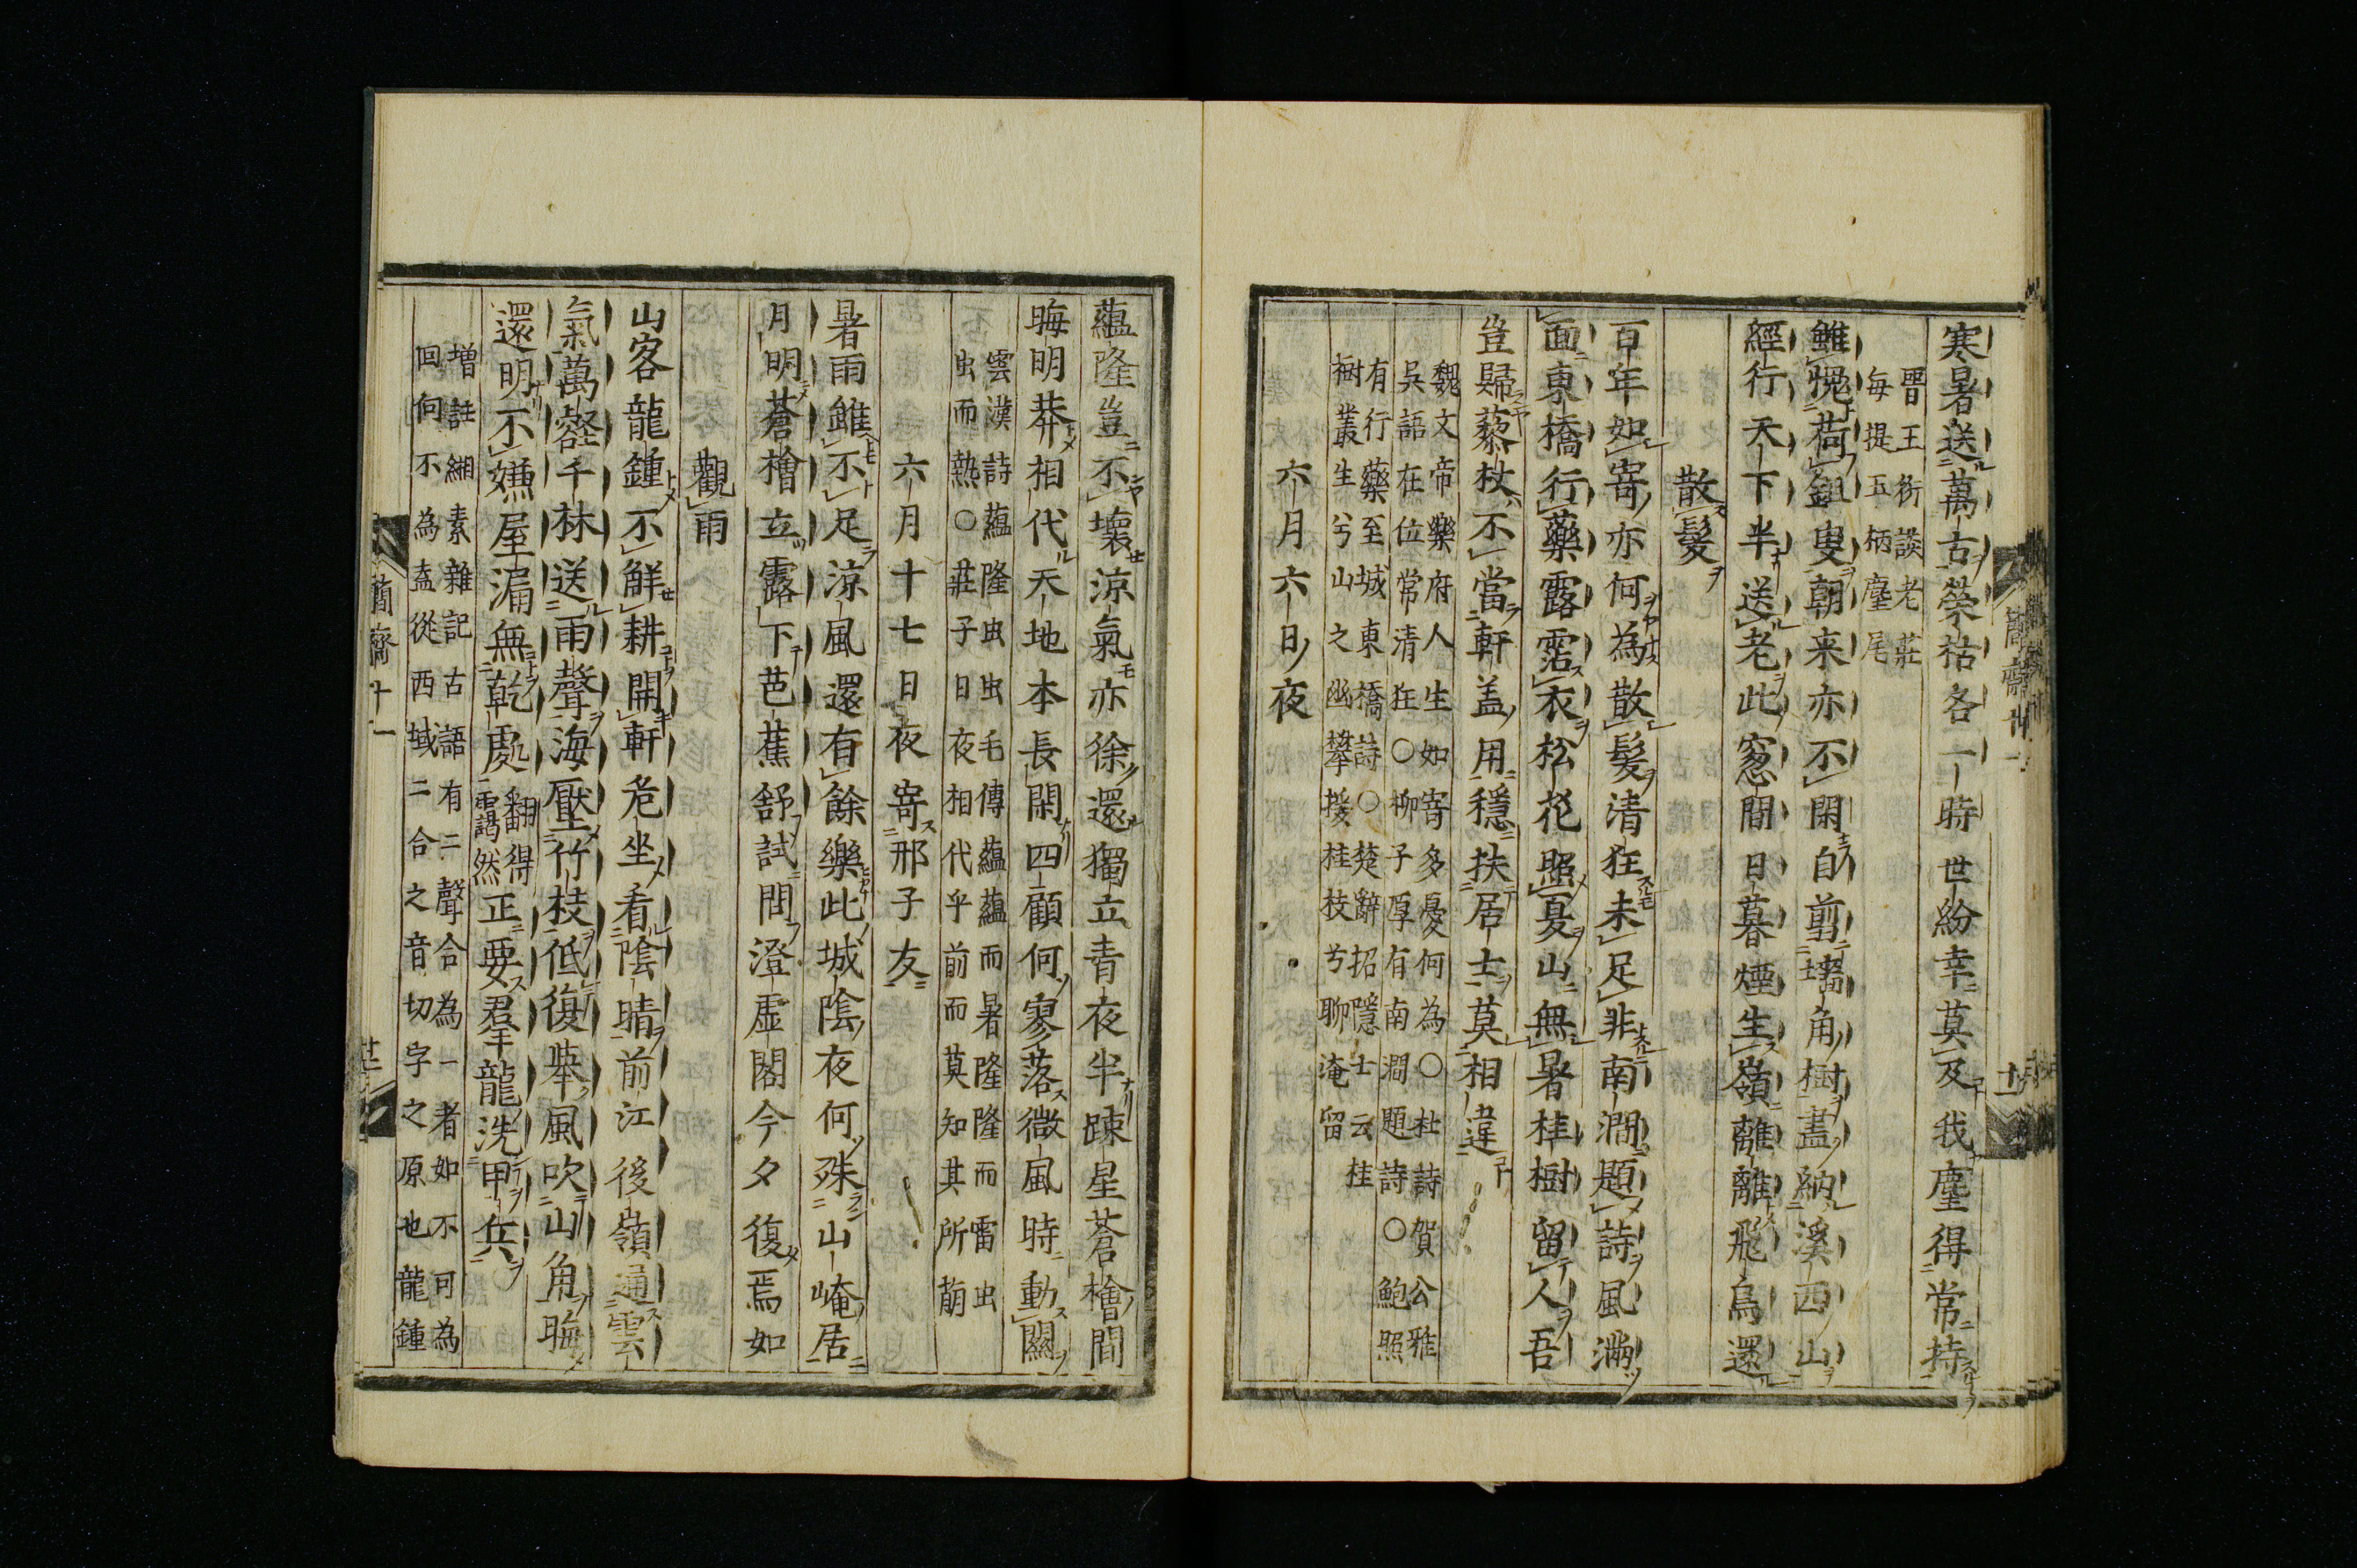 寒暑送萬古榮枯各一時世紛幸莫及我麈得常持
晋王衍談老莊
每提玉柄麈尾
雖愧荷鉏叟朝来亦不閑自剪墻角樹盡納溪西山
經行天下半送老此窓間日暮煙生嶺離離飛鳥還
散髮
百年如寄亦何為散髮清狂未足非南澗題詩風滿
面東橋行藥露霑衣松花照夏山無暑桂樹留人吾
豈歸藜杖不當軒盖用穩扶居士莫相違
魏文帝樂府人生如寄多憂何為○杜詩賀公雅
吳語在位常清狂○柳子厚有南澗題詩○鮑照
有行藥至城東橋詩○楚辭招隱士云桂
樹叢生兮山之幽攀援桂枝兮聊淹留
六月六日夜
蘊隆豈不壞涼氣亦徐還獨立青夜半踈星蒼檜間
晦明莽相代天地本長閑四顧何寥落微風時動關
雲漢詩蘊隆虫虫毛傳蘊蘊而暑隆隆而雷虫
虫而熱○莊子日夜相代乎前而莫知其所萠
六月十七日夜寄邢子友
暑雨雖不足涼風還有餘樂此城陰夜何殊山崦居
月明蒼檜立露下芭蕉舒試問澄虛閣今夕復焉如
觀雨
山客龍鍾不鮮耕開軒危坐看陰晴前江後嶺通雲
氣萬壑千林送雨聲海壓竹枝低復舉風吹山角晦
還明不嫌屋漏無乾處正要羣龍洗甲兵
翻得
靄然
増註緗素雜記古語有二聲合為一者如不可為
回何不為盍從西域二合之音切字之原也龍鍾
簡齋十一